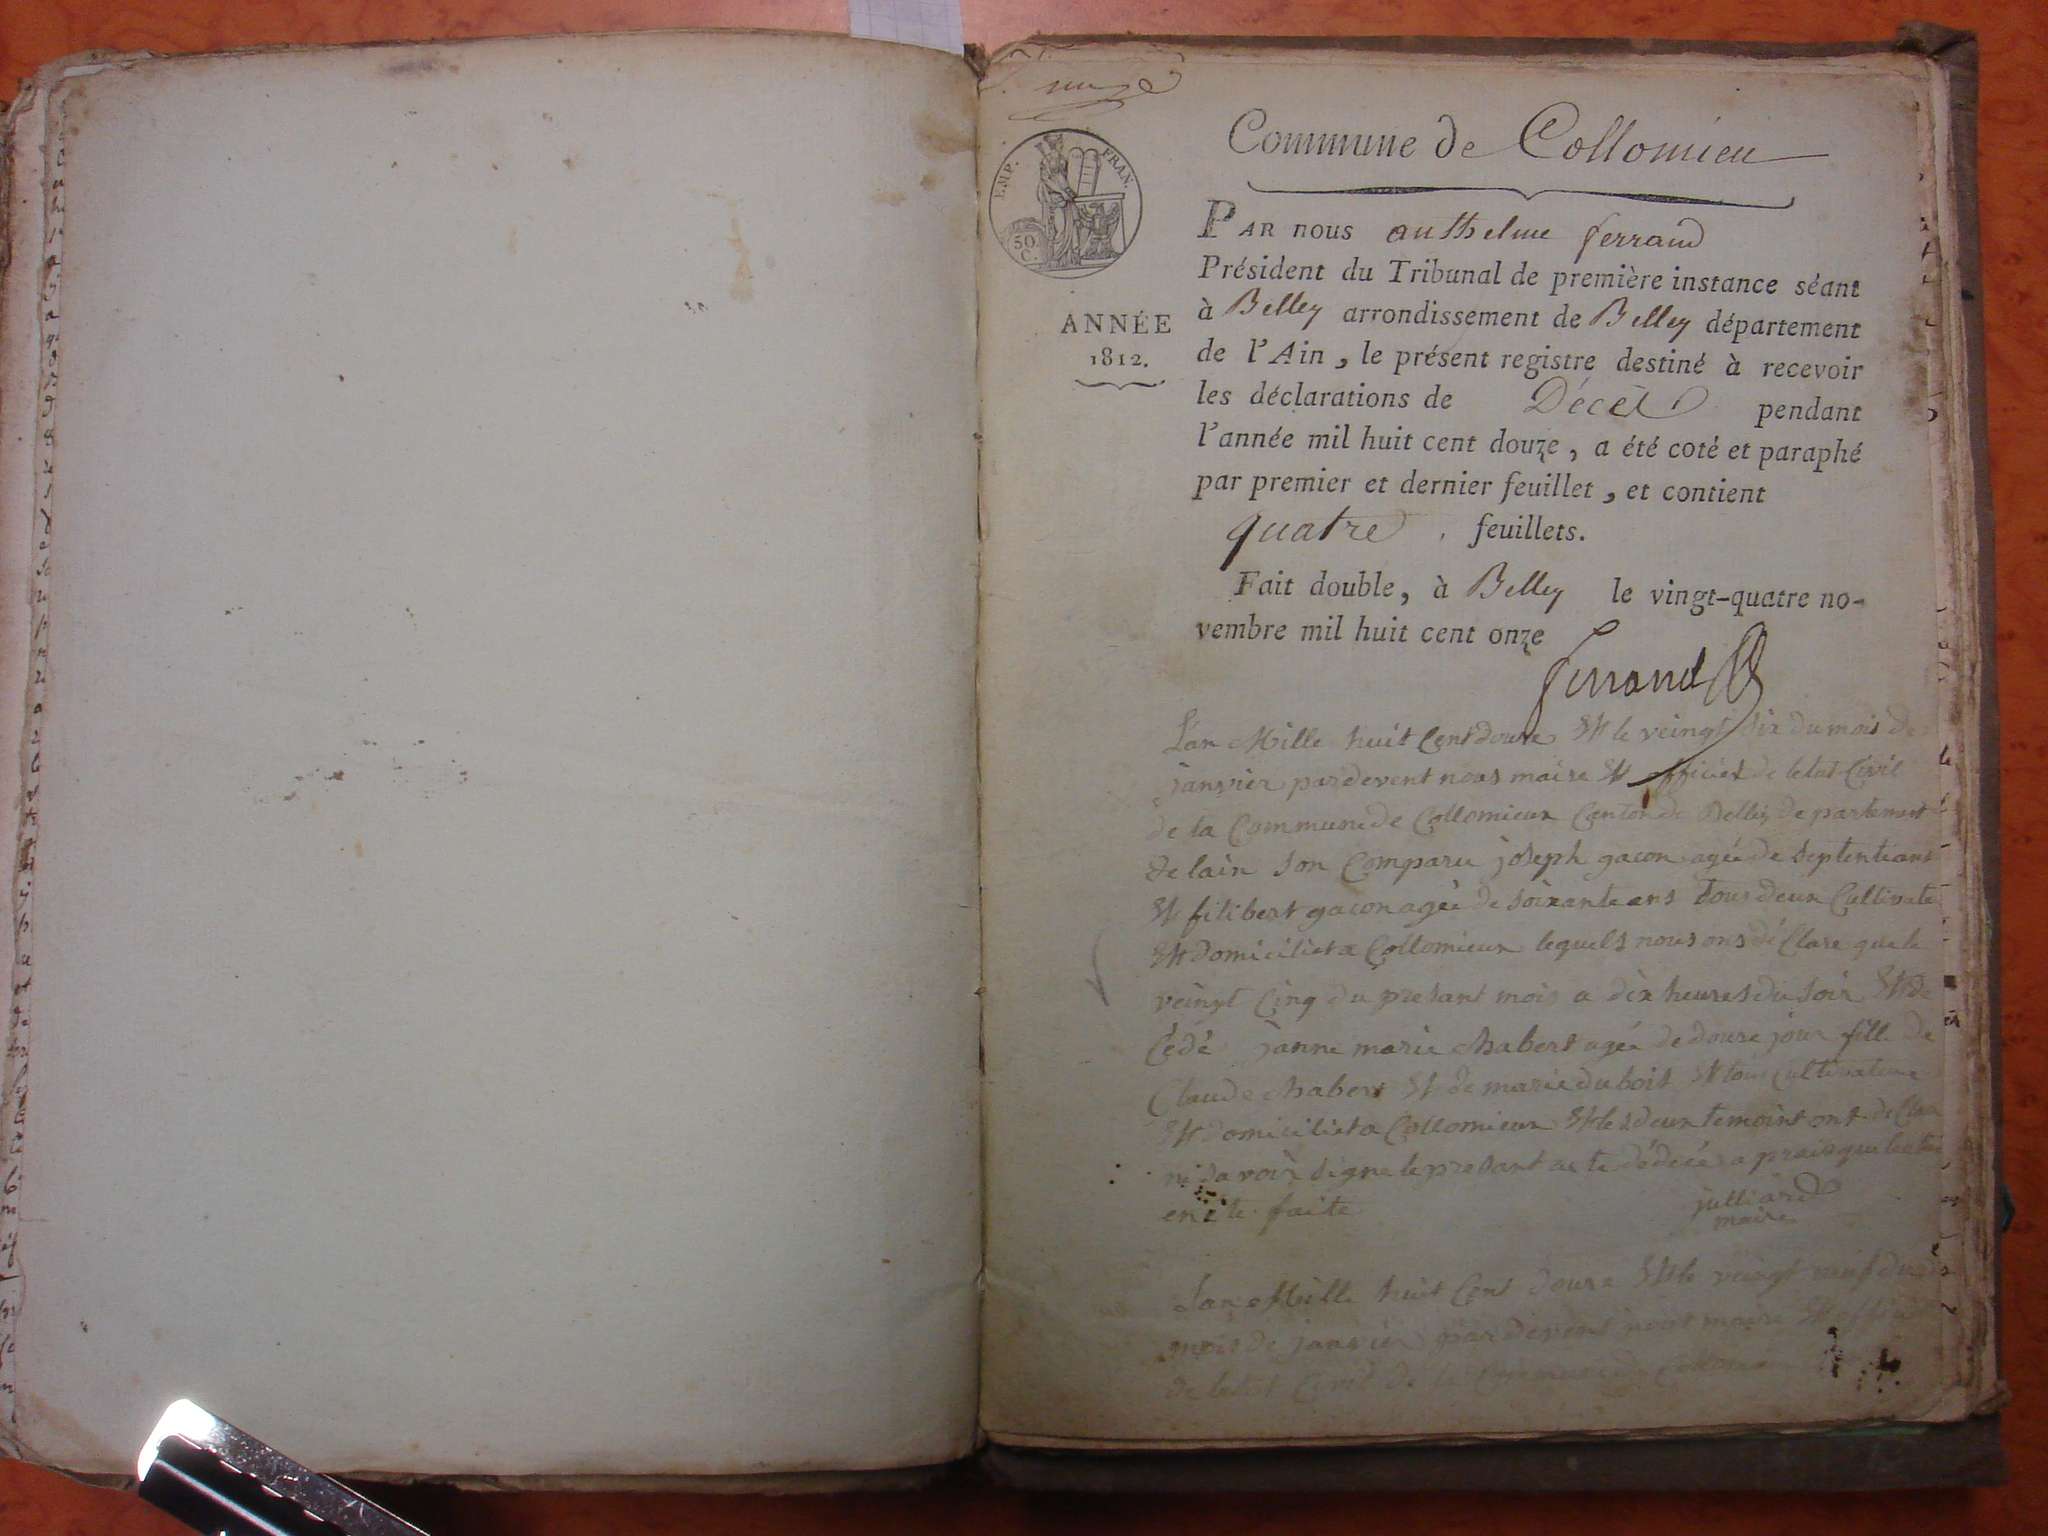 Commune de Collomieu
EMP. FRAN.
50.
C.
ANNÉE
1812.
PAR nous anthelme ferrand
Président du Tribunal de première instance séant
à Belley arrondissement de Belley département
de l'Ain, le présent registre destiné à recevoir
les déclarations de Décès pendant
l'année mil huit cent douze, a été coté et paraphé
par premier et dernier feuillet, et contient
quatre feuillets.
Fait double, à Belley le vingt-quatre no-
vembre mil huit cent onze
ferrand
L'an Mille huit Cent douze Et le veingt six du mois de
janvier pardevent nous maire Et officier de letat Civil
de la Commune de Collomieux Canton de Belley departement
de lain son Comparu joseph gacon agée de septente ans
Et filibert gacon agée de soixante ans tous deux Cultivate
Et domiciliet a Collomieux lequels nous ons déClare que le
veingt Cinq du presant mois a dix heures du soir Et de
Cédé janne marie Chabert agée de douze jour fille de
Claude Chabert Et de marie dubois Et tous Cultivateur
Et domiciliet a Collomieux Et les deux temoint ont de Clar
ne savoir signe le presant acte dédecé a prais que lecture
en ete faite
julliard
maire
Lan Mille huit Cent douze Et le veingt neuf du
mois de janvier pardevent nous maire Et offici
de letat Civil de la Commune de Collomieu